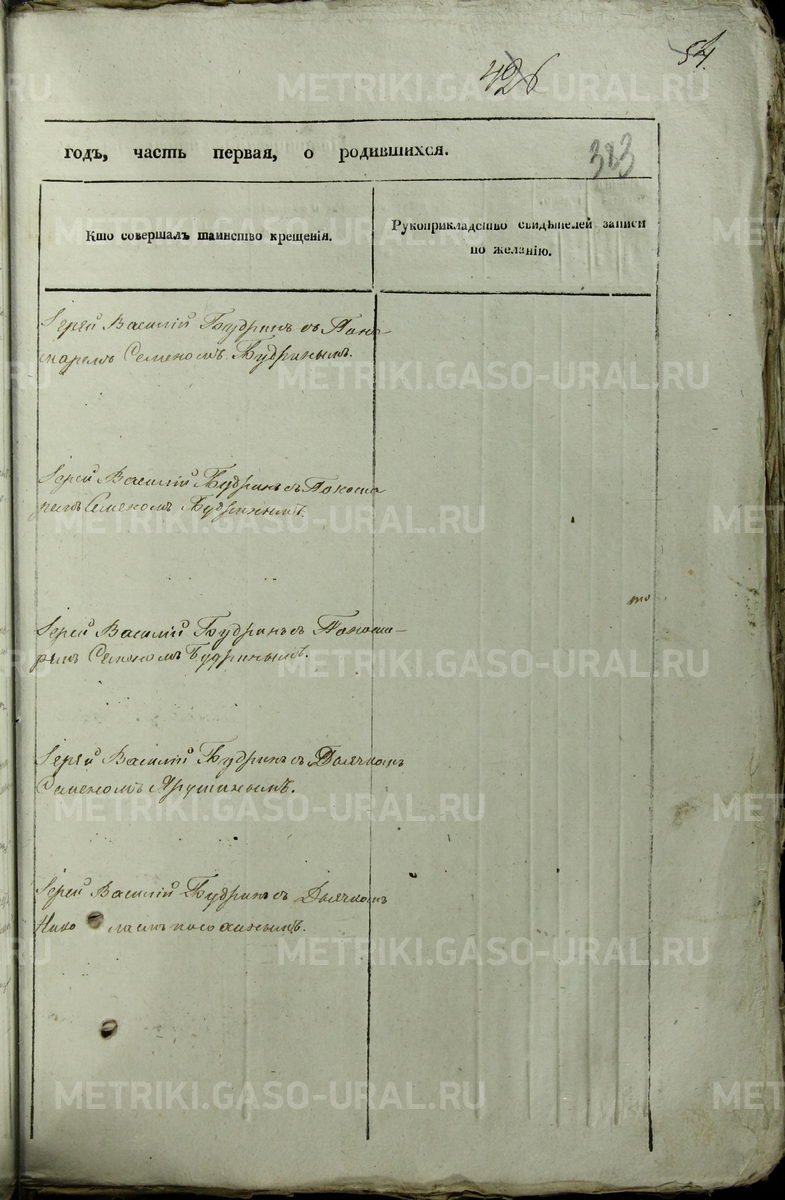 426
54.
годъ, часть первая, о родившихся.
323
Кто совершалъ таинство крещенія.
Рукоприкладство свидѣтелей записи
по желанію.
Іерей Василій Будринъ съ Поно-
маремъ Семеномъ Будринымъ.
Іерей Василій Будринъ съ Понома
ремъ Семеномъ Будринымъ.
то
Іерей Василій Будринъ съ Понома-
ремъ Семеномъ Будринымъ.
Іерей Василій Будринъ съ Дьячкомъ
Семеномъ Ярушинымъ.
Іерей Василій Будринъ съ Дьячкомъ
Нико лаемъ
METRIKI.GASO-URAL.RU